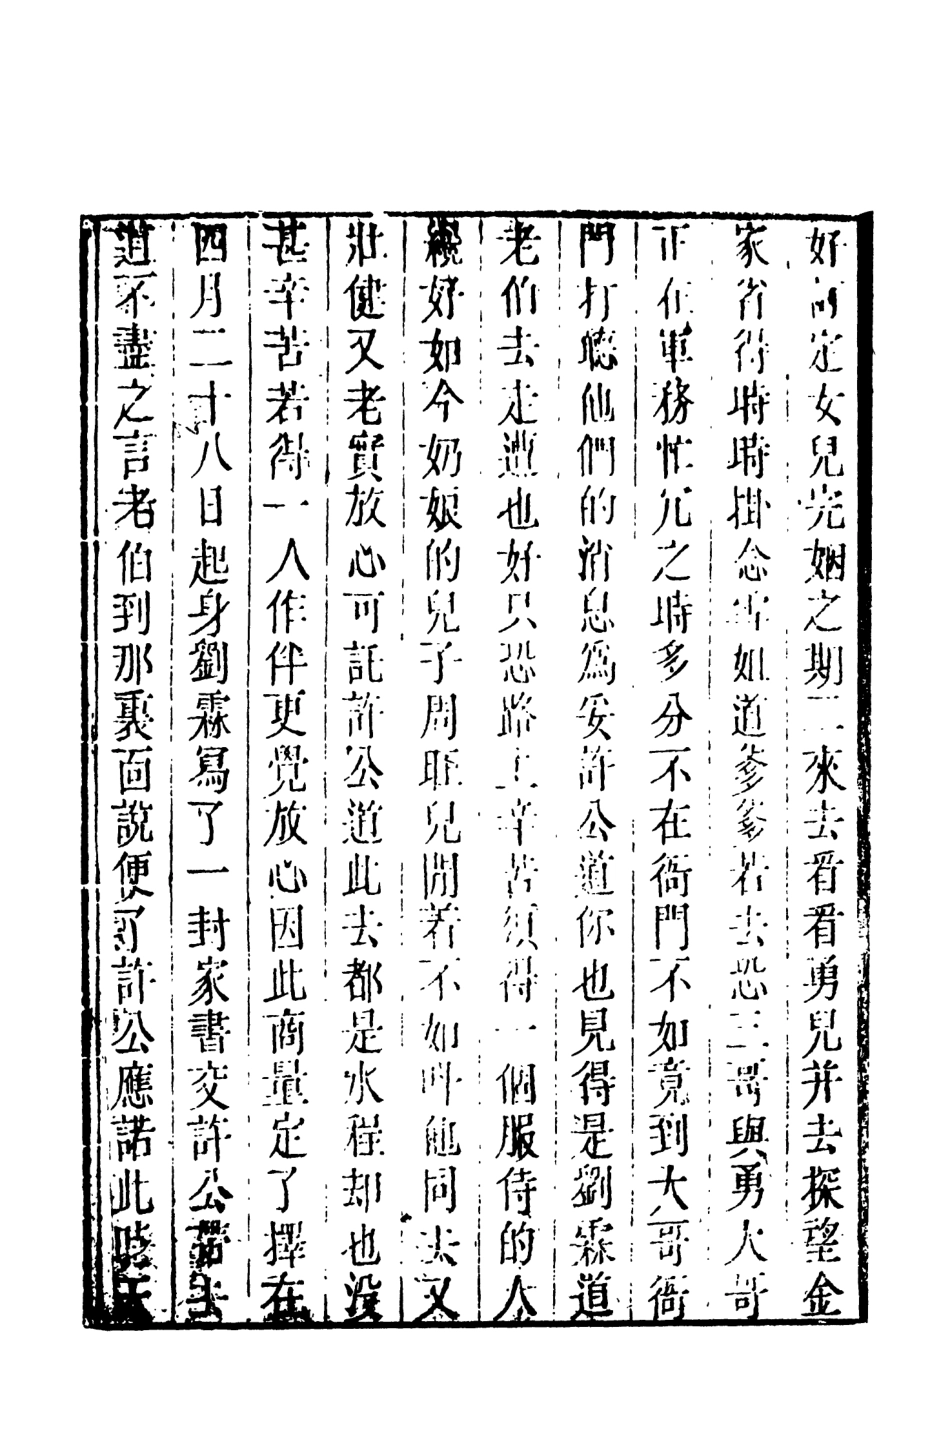 好討定女兒完姻之期二來去看看勇兒并去探望金
家省得時時掛念雪如道爹爹若去恐三哥與勇大哥
正在軍務忙冗之時多分不在衙門不如竟到大哥衙
門打聽他們的消息爲妥許公道你也見得是劉霖道
老伯去走遭也好只恐路上辛苦須得一個服侍的人
纔好如今奶娘的兒子周旺兒閒着不如叫他同去又
壯健又老實放心可託許公道此去都是水程却也没
甚辛苦若得一人作伴更覺放心因此商量定了擇在
四月二十八日起身劉霖寫了一封家書交許公帶去
道不盡之言老伯到那裏面說便了許公應諾此時天